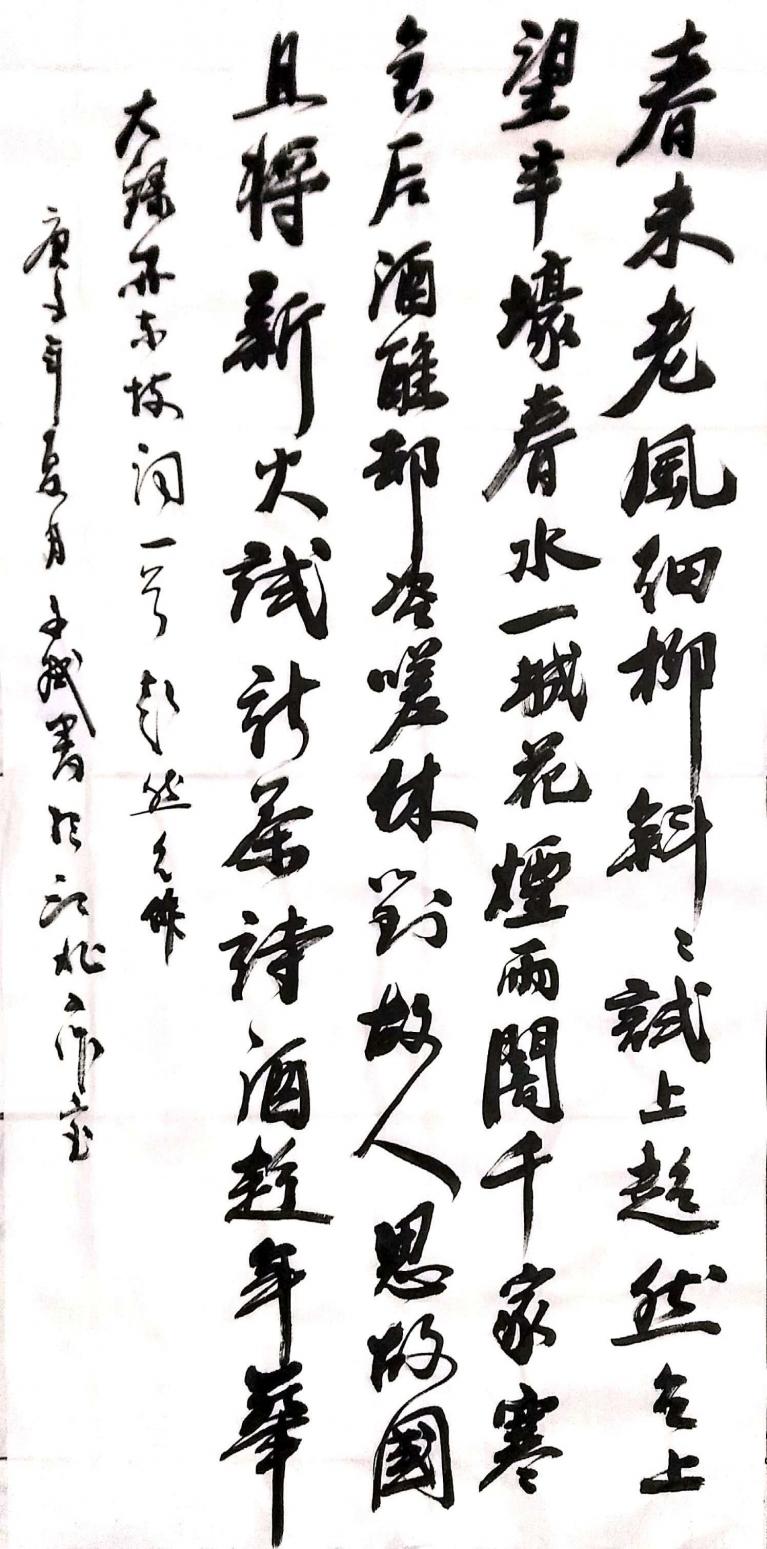 春未老風細柳斜〻試上超然台上
望半壕春水一城花煙雨闇千家寒
食后酒醒却咨嗟休對故人思故國
且將新火試新茶詩酒趁年華
大錄蘇东坡词一首 超然台作
庚子年夏月 書於江北工作室